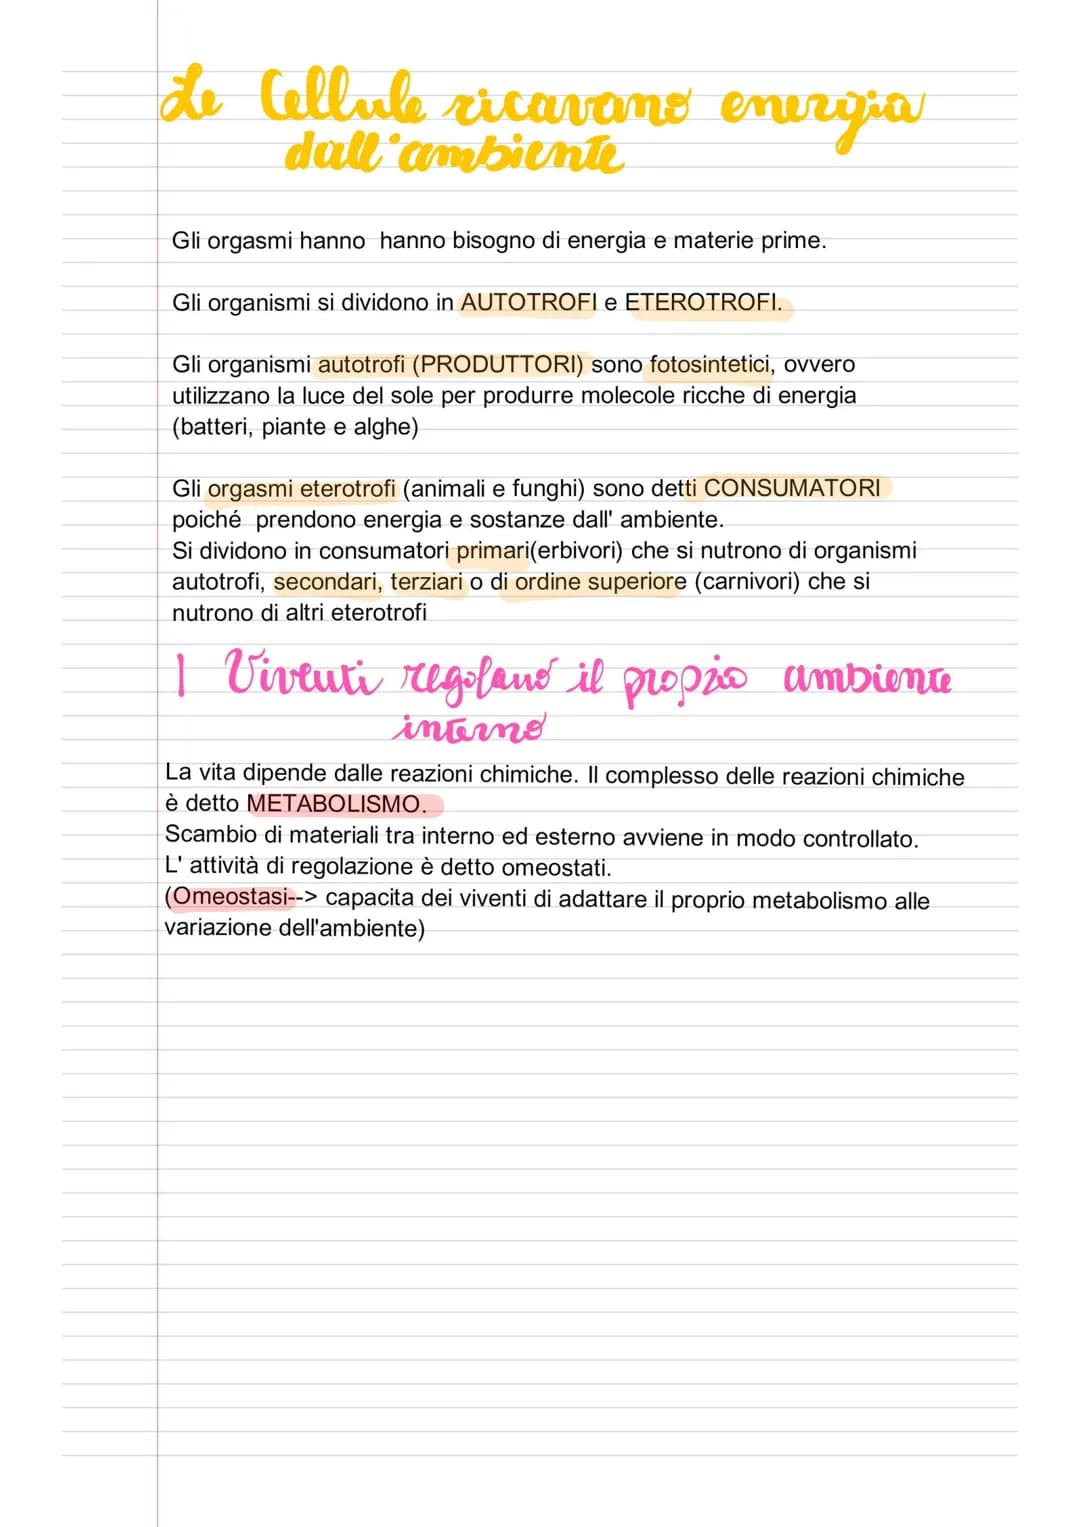 Le Cellule ricavano energia
dall'ambiente
Gli orgasmi hanno hanno bisogno di energia e materie prime.
Gli organismi si dividono in AUTOTROFI e ETEROTROFI.
Gli organismi autotrofi (PRODUTTORI) sono fotosintetici, ovvero
utilizzano la luce del sole per produrre molecole ricche di energia
(batteri, piante e alghe)
Gli orgasmi eterotrofi (animali e funghi) sono detti CONSUMATORI
poiché prendono energia e sostanze dall' ambiente.
Si dividono in consumatori primari(erbivori) che si nutrono di organismi
autotrofi, secondari, terziari o di ordine superiore (carnivori) che si
nutrono di altri eterotrofi
I Viventi regolano il propzio ambiente
interno
La vita dipende dalle reazioni chimiche. Il complesso delle reazioni chimiche
è detto METABOLISMO.
Scambio di materiali tra interno ed esterno avviene in modo controllato.
L' attività di regolazione è detto omeostati.
(Omeostasi--> capacita dei viventi di adattare il proprio metabolismo alle
variazione dell'ambiente)